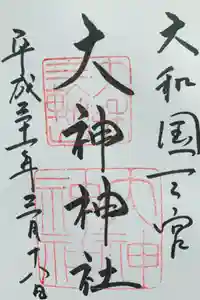 大和国一之宮
大神神社
平成三十一年三月十八日